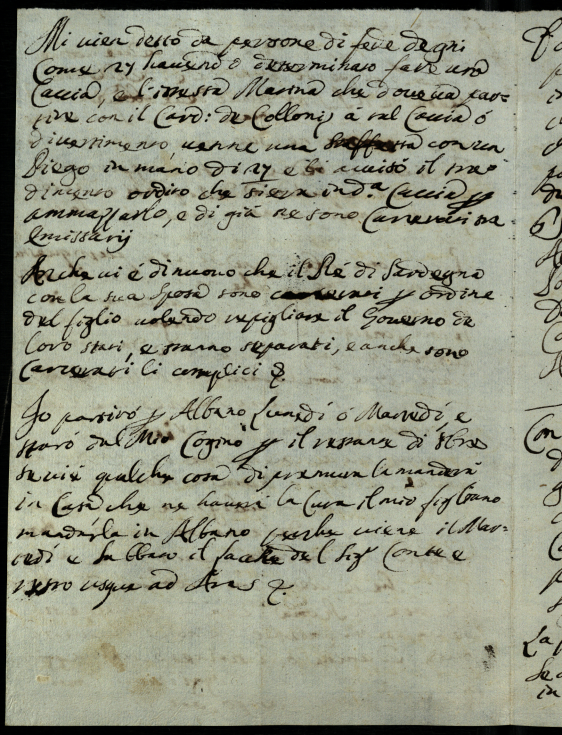 Mi vien detto da persone di fede degni
Come 27 havendo determinato fare una
Caccia, e l'istessa Matina che doveva par=
tire con il Card: de Collonis à tal Caccia ó
divertimento, venne una staffetta con un
Piego in mano di 27 e li avvisò il tra=
dimento ordito che si era in d.ª Caccia p
ammazzarlo, e di già ne sono Carcerati tre
Emissarij
Anche vi é di nuovo che il Ré di Sardegna
con la sua Sposa sono carcerati p ordine
del figlio volendo repigliare il Governo de
loro stati, e stanno separati, e anche sono
Carcerati li complici
Io partiró p Albano Lunedí ó Martedí, e
staró dal Mio Cogino p il restante di 8bre
se vi é qualche cosa di premura la manderà
in Casa che ne haverà la Cura il mio figliano
mandarla in Albano perche viene il Mar=
tedí e Sabbato il del Sig.r Conte e
resto usque ad Aras